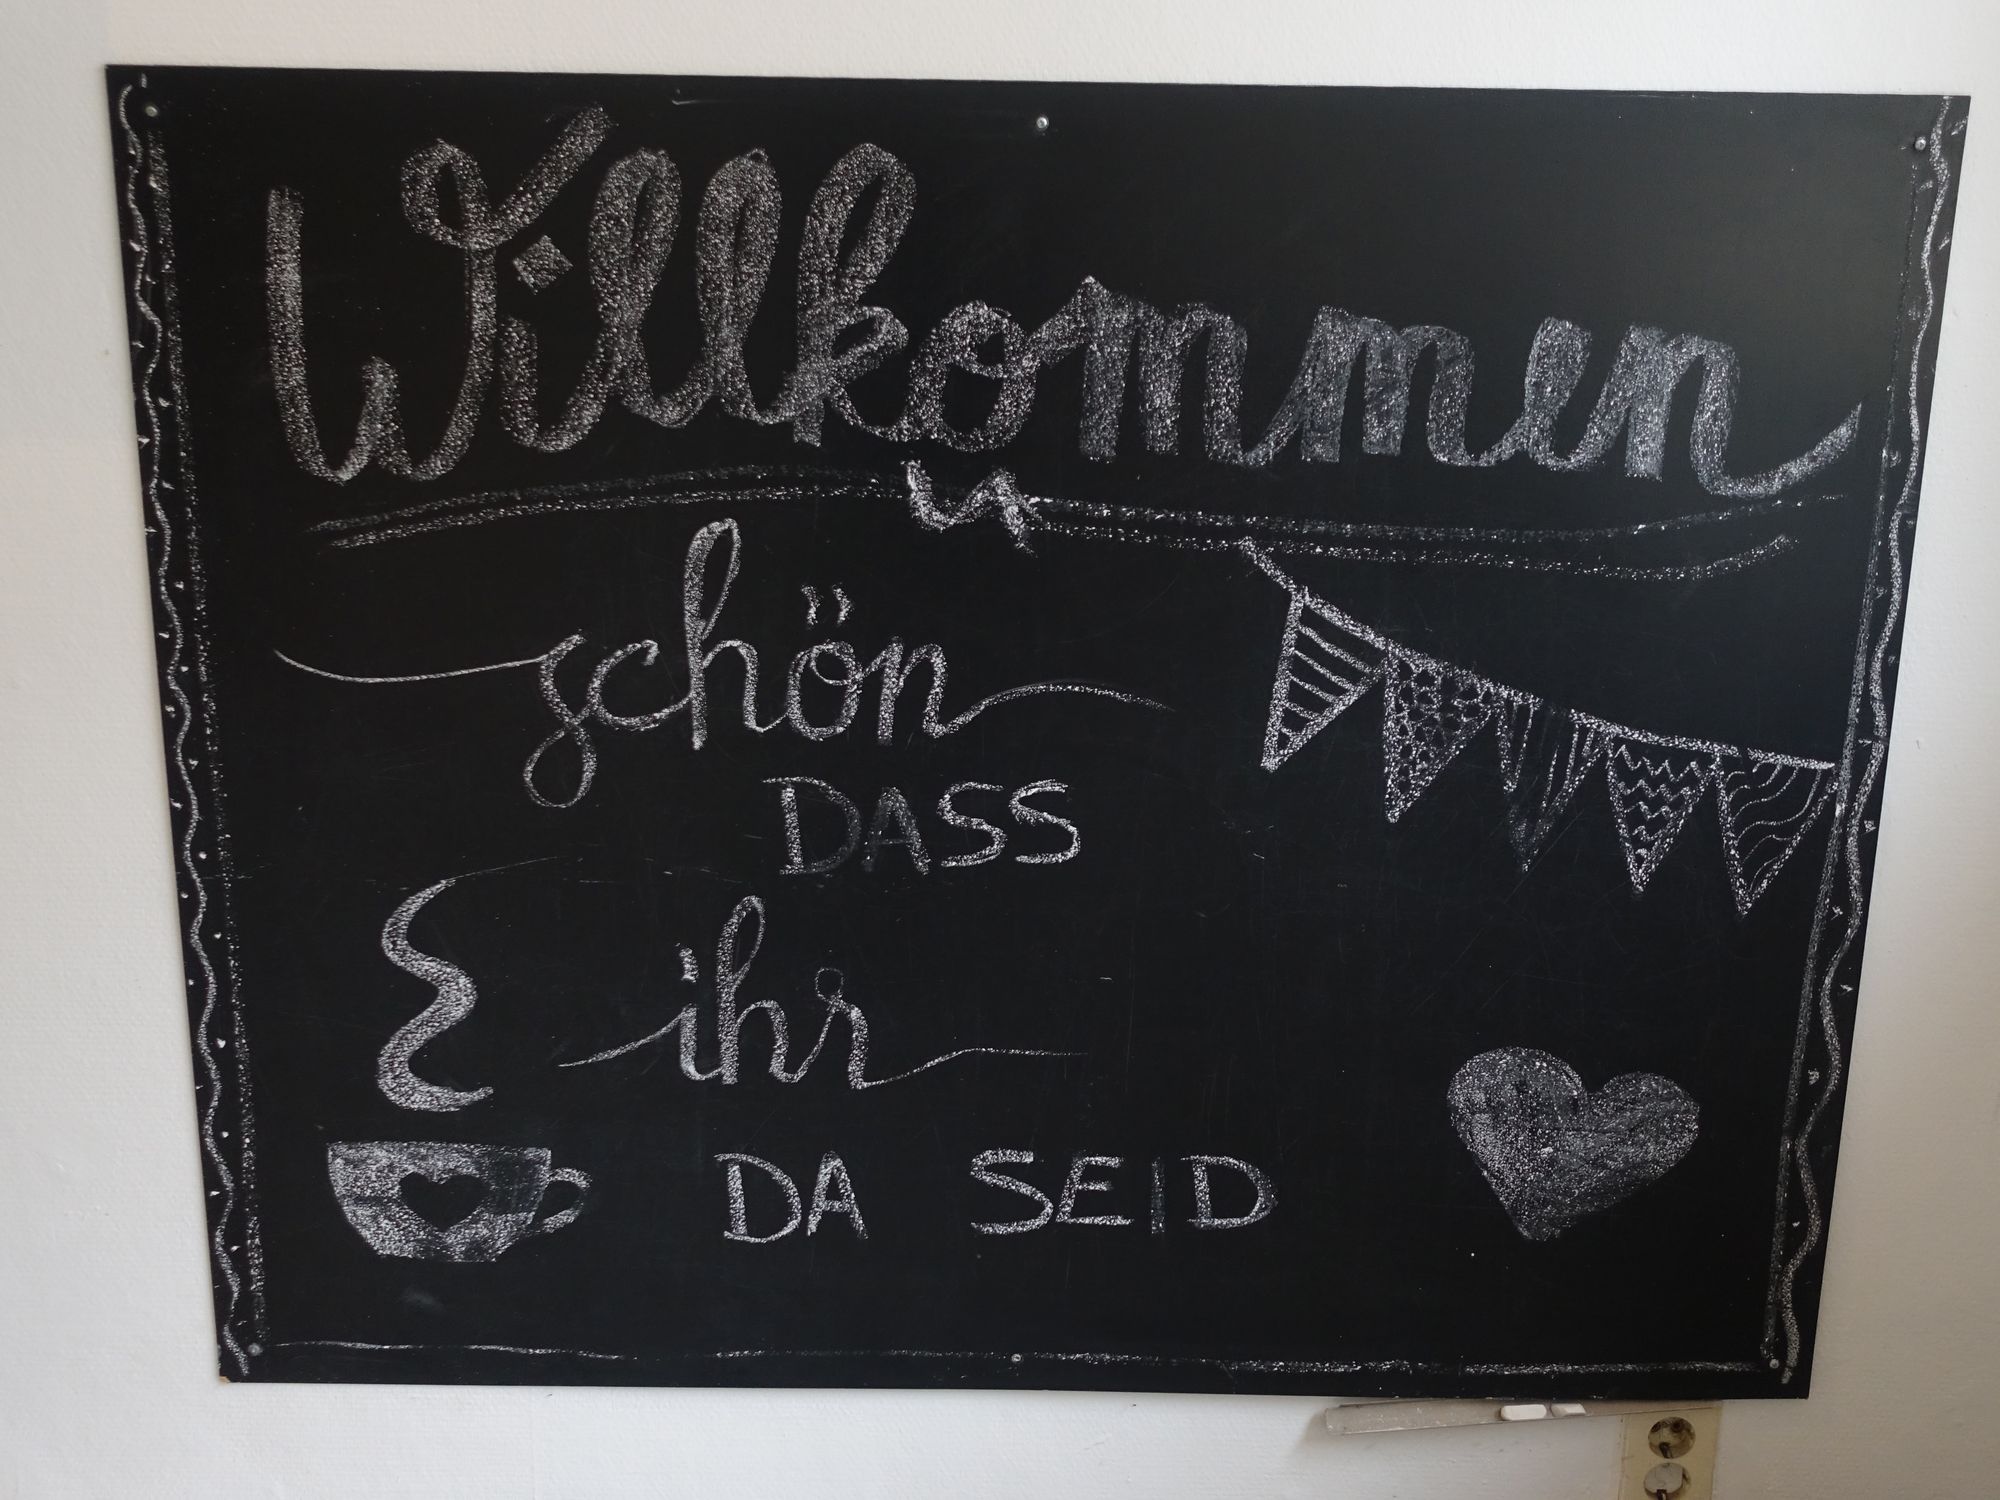 Willkommen
schön
DASS
ihr
DA SEID